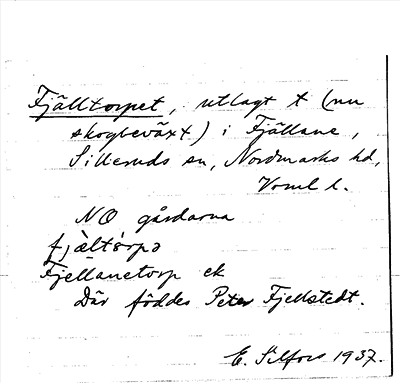 Fjälltorpet, utlagt t (nu
skogbeväxt) i Fjällane,
Silleruds sn, Nordmarks hd,
Vrml l.
NO gårdarna
fjæ̀ltórpə
Fjellanetorp ek
Där föddes Peter Fjellstedt.
E. Silfors 1937.